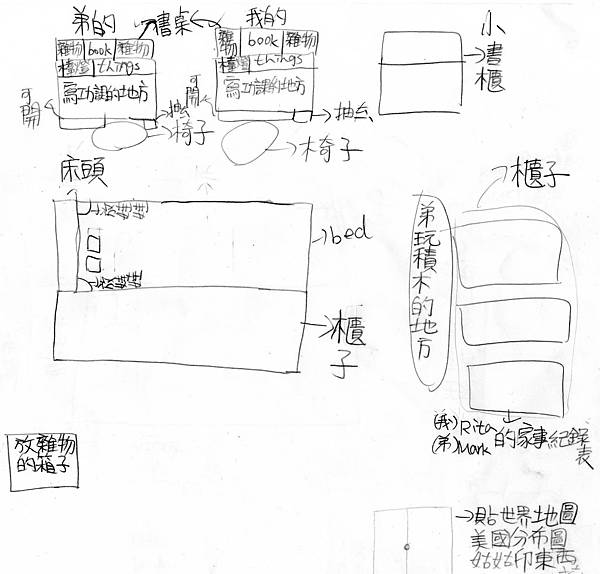 弟的
書桌
我的
雜物 book 雜物
檯燈 things
寫功課的地方
可開
抽
椅子
雜物 book 雜物
檯燈 things
寫功課的地方
可開
抽
椅子
小書櫃
床頭
bed
櫃子
櫃子
弟玩積木的地方
(我)Rita
(弟)Mark
的家事紀錄表
放雜物
的箱子
貼世界地圖
美國分布圖
印東西